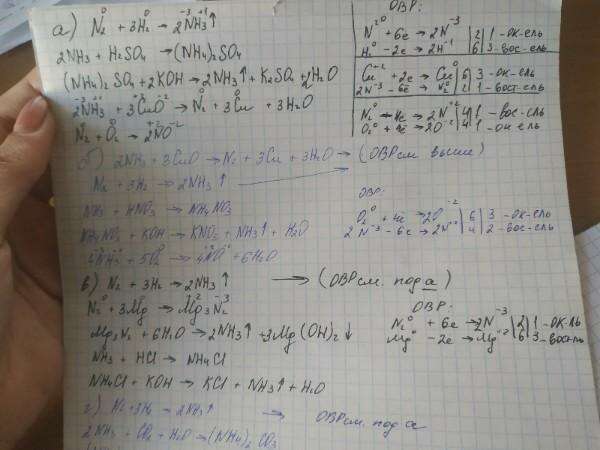 а) N₂⁰ + 3H₂⁰ → 2NH₃⁻³⁺¹↑
2NH₃ + H₂SO₄ → (NH₄)₂SO₄
(NH₄)₂SO₄ + 2KOH → 2NH₃↑ + K₂SO₄ + 2H₂O
2NH₃ + 3CuO → N₂⁰ + 3Cu⁰ + 3H₂O
N₂⁰ + O₂⁰ → 2NO
ОВР:
N₂⁰ + 6e → 2N⁻³ | 2 | 1 - ок-ель
H₂⁰ - 2e → 2H⁺¹ | 6 | 3 - вос-ель
Cu⁺² + 2e → Cu⁰ | 6 | 3 - ок-ель
2N⁻³ - 6e → N₂⁰ | 2 | 1 - вост-ель
N₂⁰ - 4e → 2N⁺² | 4 | 1 - вос-ель
O₂⁰ + 4e → 2O⁻² | 4 | 1 - ок-ель
б) 2NH₃ + 3CuO → N₂ + 3Cu + 3H₂O → (ОВР см. выше)
N₂ + 3H₂ → 2NH₃↑
NH₃ + HNO₃ → NH₄NO₃
NH₄NO₃ + KOH → KNO₃ + NH₃↑ + H₂O
4NH₃ + 5O₂ → 4NO + 6H₂O
ОВР:
O₂⁰ + 4e → 2O⁻² | 6 | 3 - ок-ель
2N⁻³ - 6e → | 4 | 2 - вос-ель
в) N₂ + 3H₂ → 2NH₃↑ → (ОВР см. под а)
N₂⁰ + 3Mg⁰ → Mg₃N₂⁻³
Mg₃N₂ + 6H₂O → 2NH₃↑ + 3Mg(OH)₂↓
NH₃ + HCl → NH₄Cl
NH₄Cl + KOH → KCl + NH₃↑ + H₂O
ОВР:
N₂⁰ + 6e → 2N⁻³ | 2 | 1 - ок-ль
Mg⁰ - 2e → Mg⁺² | 6 | 3 - вос-ль
г) N₂ + 3H₂ → 2NH₃↑ → ОВР см. под а
2NH₃ + CO₂ + H₂O → (NH₄)₂CO₃